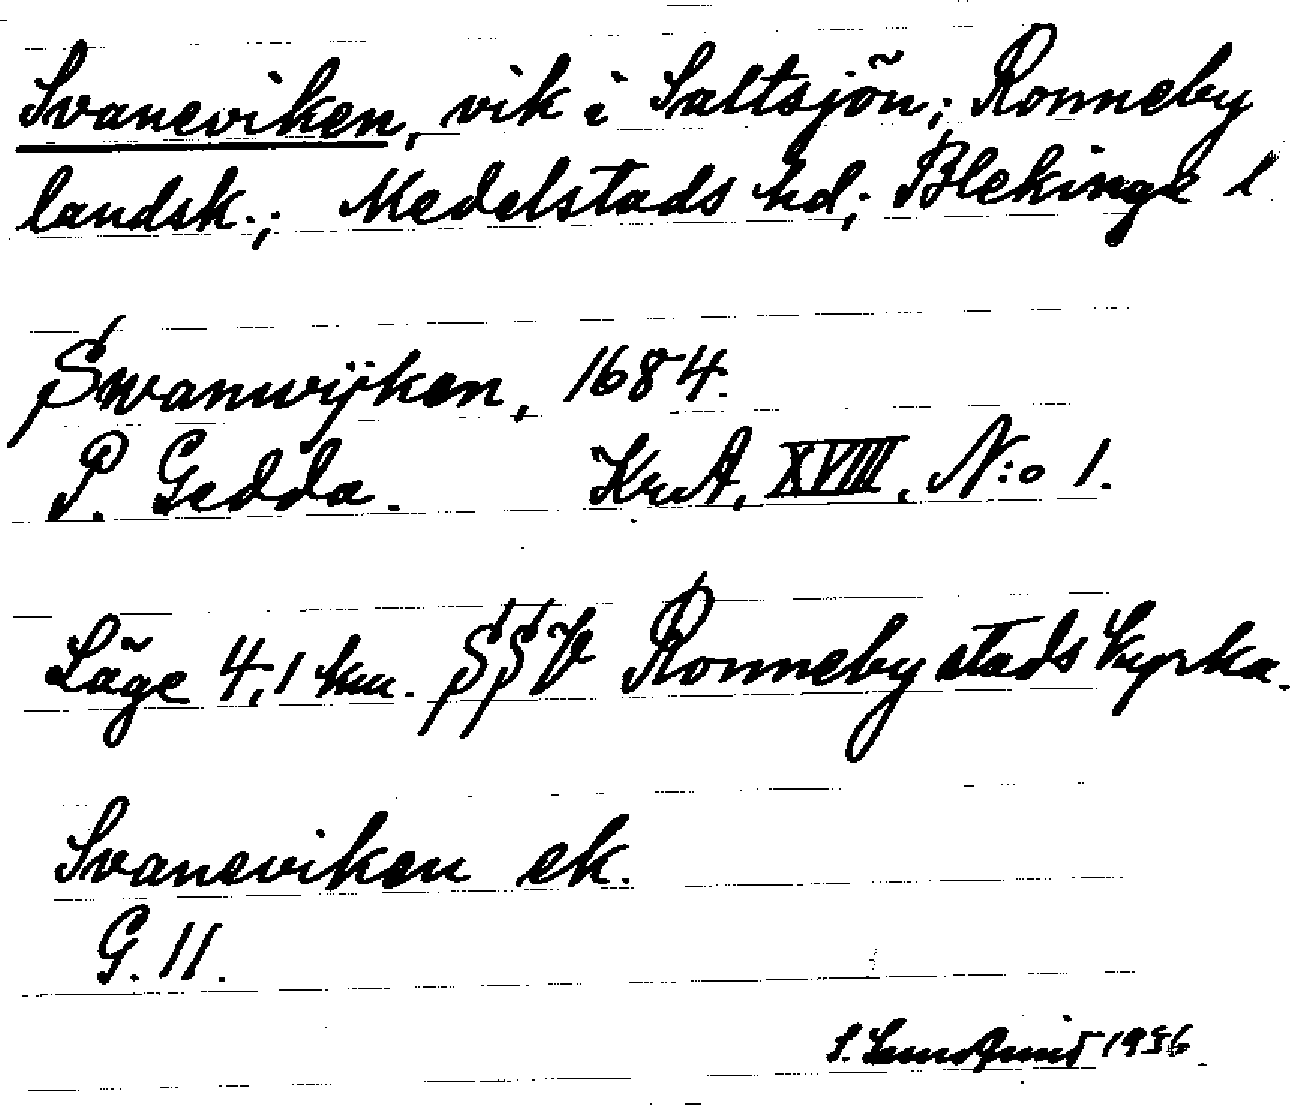 Svaneviken, vik i Saltsjön; Ronneby
landsk.; Medelstads hd; Blekinge l
Swanwijken, 1684.
P. Gedda. KrA, XVIII, N:o 1.
Läge 4,1 km. SSV Ronneby stads kyrka.
Svaneviken ek.
G. 11.
1936